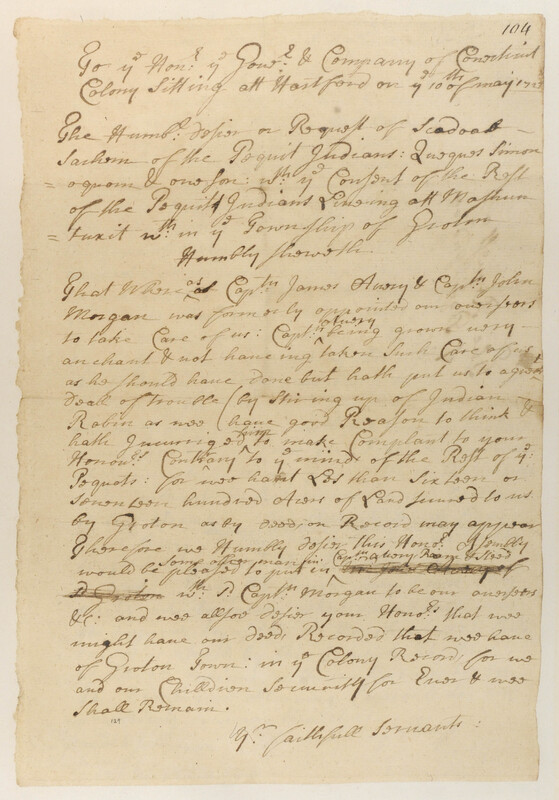 104
To yᵉ Honʳ yᵉ Govʳ & Company of Conecticut
Colony Sitting att Hartford on yᵉ 10th of may
The Humbˡ desier or Request of Scadoab
Sachem of the Pequit Indians: Queques Simon
= oquom & one son: wth yᵉ Consent of the Rest
of the Pequitt Indians Liveing att Mashun
= tuxit wth in yᵉ Township of Groton
Humbly sheweth
That Where as Captn James Avery & Captn John
Morgan was formerly appointed our overseers
to take Care of us: Captn Avery being grown very
anchant & not haveing taken Such Care of us
as he should have done but hath put us to a great
Deall of trouble (by Stiring up of Indian
Robin as wee have good Reason to think &
hath Incurriged him to make Complant to your
Honours Contrary to yᵉ mind of the Rest of yᵉ
Pequots: for wee had Les than Sixteen or
seventeen hundred Acers of Land secured to us
by Groton as by deed on Record may appear
Therefore we Humbly desier this Honoʳ Assembly
would be pleased to put in Some other man in Captn Avery Room & Steed
wth sᵈ Captn Morgan to be our overseers
&c: and wee allsoe desier your Honoʳˢ that wee
might have our deed Recorded that wee have
of Groton Town: in yᵉ Colony Record for we
and our Chilldren Security for Ever & wee
Shall Remain.
Yʳ faithfull servants: